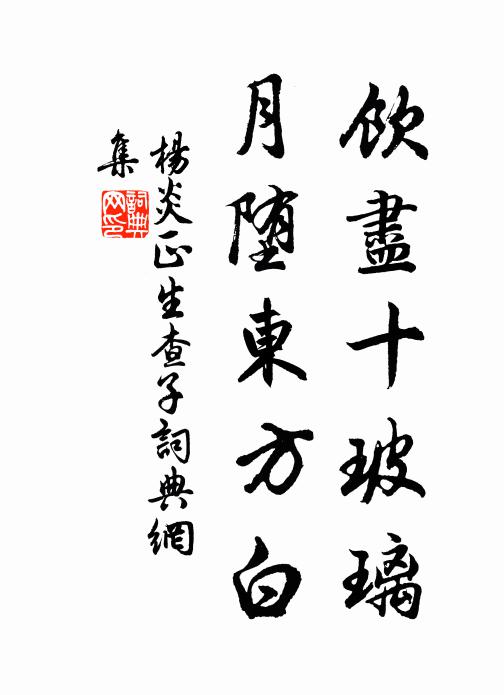 飲盡十玻璃
月墮東方白
楊炎正生查子詞典網
集
詞典
网印